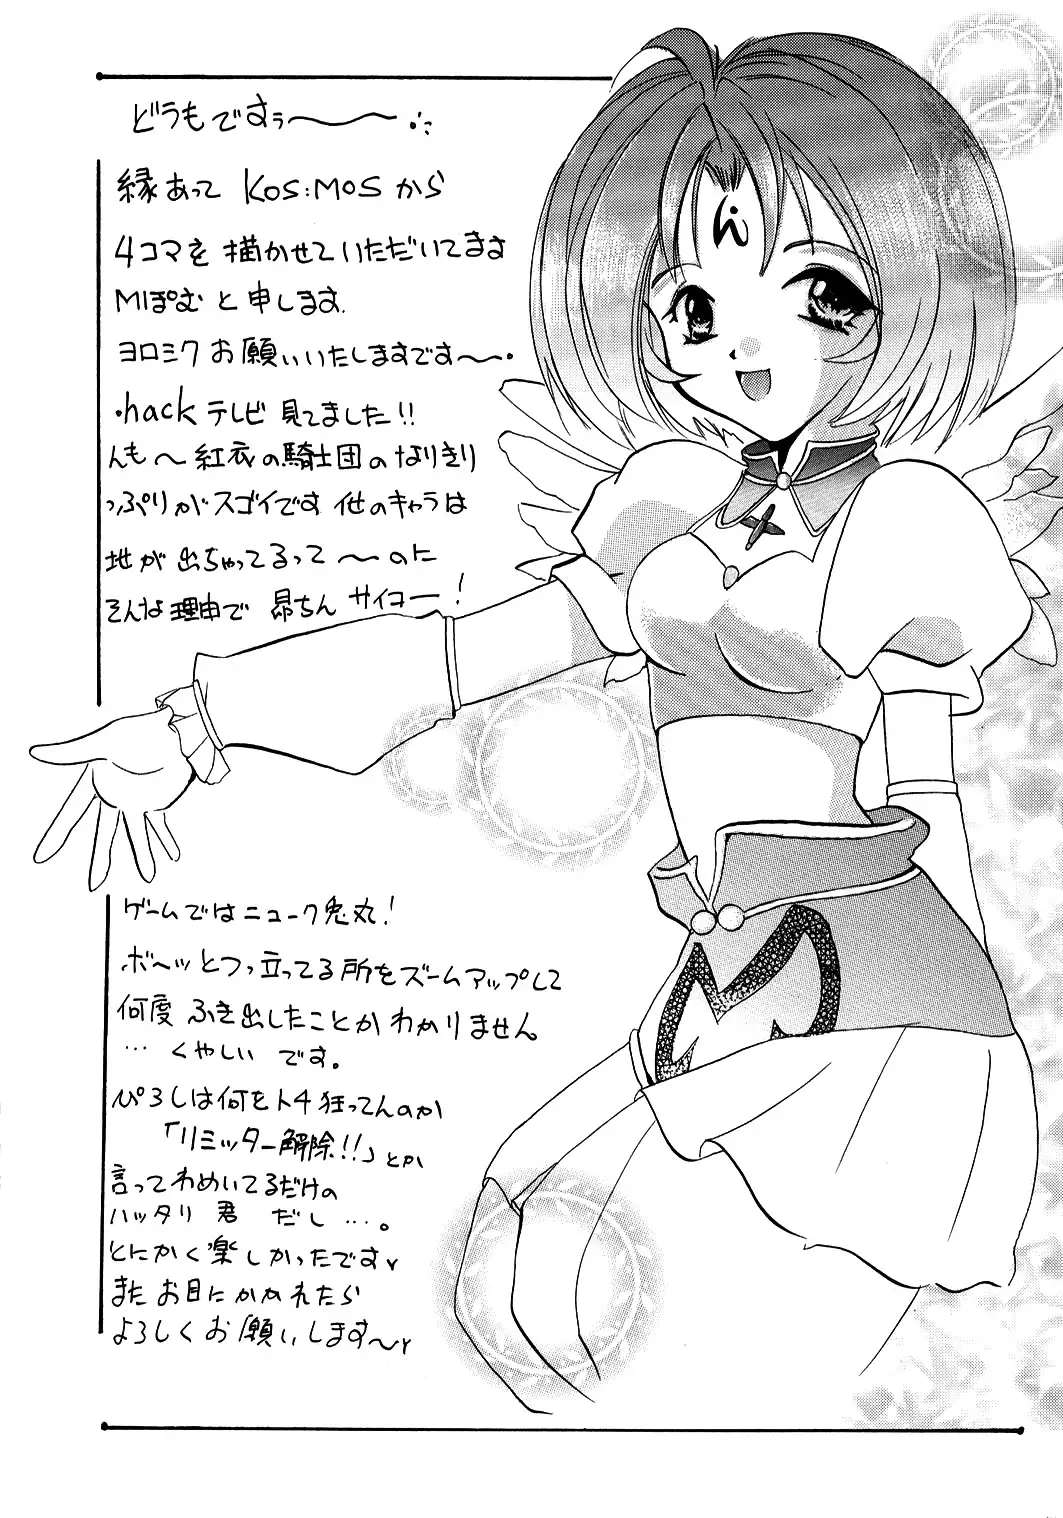 どうもですぅ〜〜
縁あって KOS:MOSから
4コマを描かせていただいてます
M1ぽむと申します.
ヨロシクお願いいたしますです〜.
.hackテレビ見てました!!
んも〜紅衣の騎士団のなりきり
っぷりがスゴイです他のキャラは
地が出ちゃってるって〜のに
そんな理由で 昴ちん サイコー!
ゲームではニューク兎丸!
ボ〜ッとつっ立ってる所をズームアップして
何度ふき出したことかわかりません
… くやしい です。
ぴろしは何をトチ狂ってんのか
「リミッター解除!!」とか
言ってわめいてるだけの
ハッタリ君 だし …。
とにかく楽しかったです
またお目にかかれたら
よろしくお願いします〜